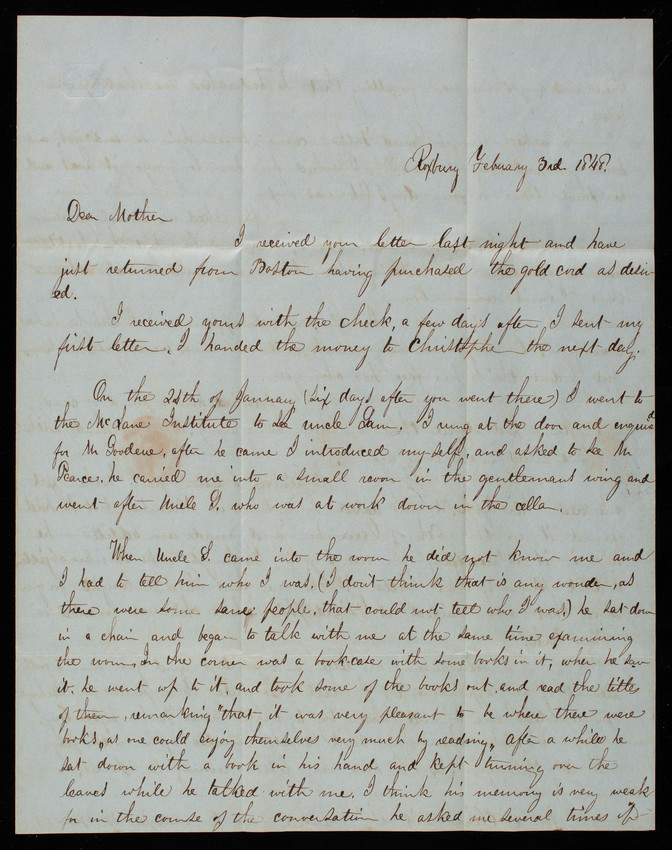 Roxbury February 3rd. 1848.
Dear Mother
I received your letter last night and have
just returned from Boston having purchased the gold cord as desir-
ed.
I received yours with the check, a few days after I sent my
first letter. I handed the money to Christopher the next day.
On the 24th of January (six days after you went there) I went to
the McLane Institute to see uncle Sam. I rung at the door and enquired
for Mr Goodene, after he came I introduced my-self, and asked to see Mr
Pearce, he carried me into a small room in the gentlemans wing and
went after Uncle S. who was at work down in the cellar.
When Uncle S. came into the room he did not know me and
I had to tell him who I was, (I don't think that is any wonder, as
there were some sane people, that could not tell who I was,) he sat down
in a chair and began to talk with me at the same time examining
the room, In the corner was a book-case with some books in it, when he saw
it, he went up to it, and took some of the books out and read the titles
of them, remarking "that it was very pleasant to be where there were
books, as one could enjoy themselves very much by reading," after a while he
sat down with a book in his hand and kept turning over the
leaves while he talked with me. I think his memory is very weak
for in the course of the conversation he asked me several times if